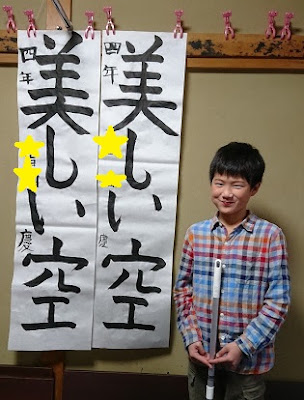 美しい空
四年 慶
美しい空
四年 慶